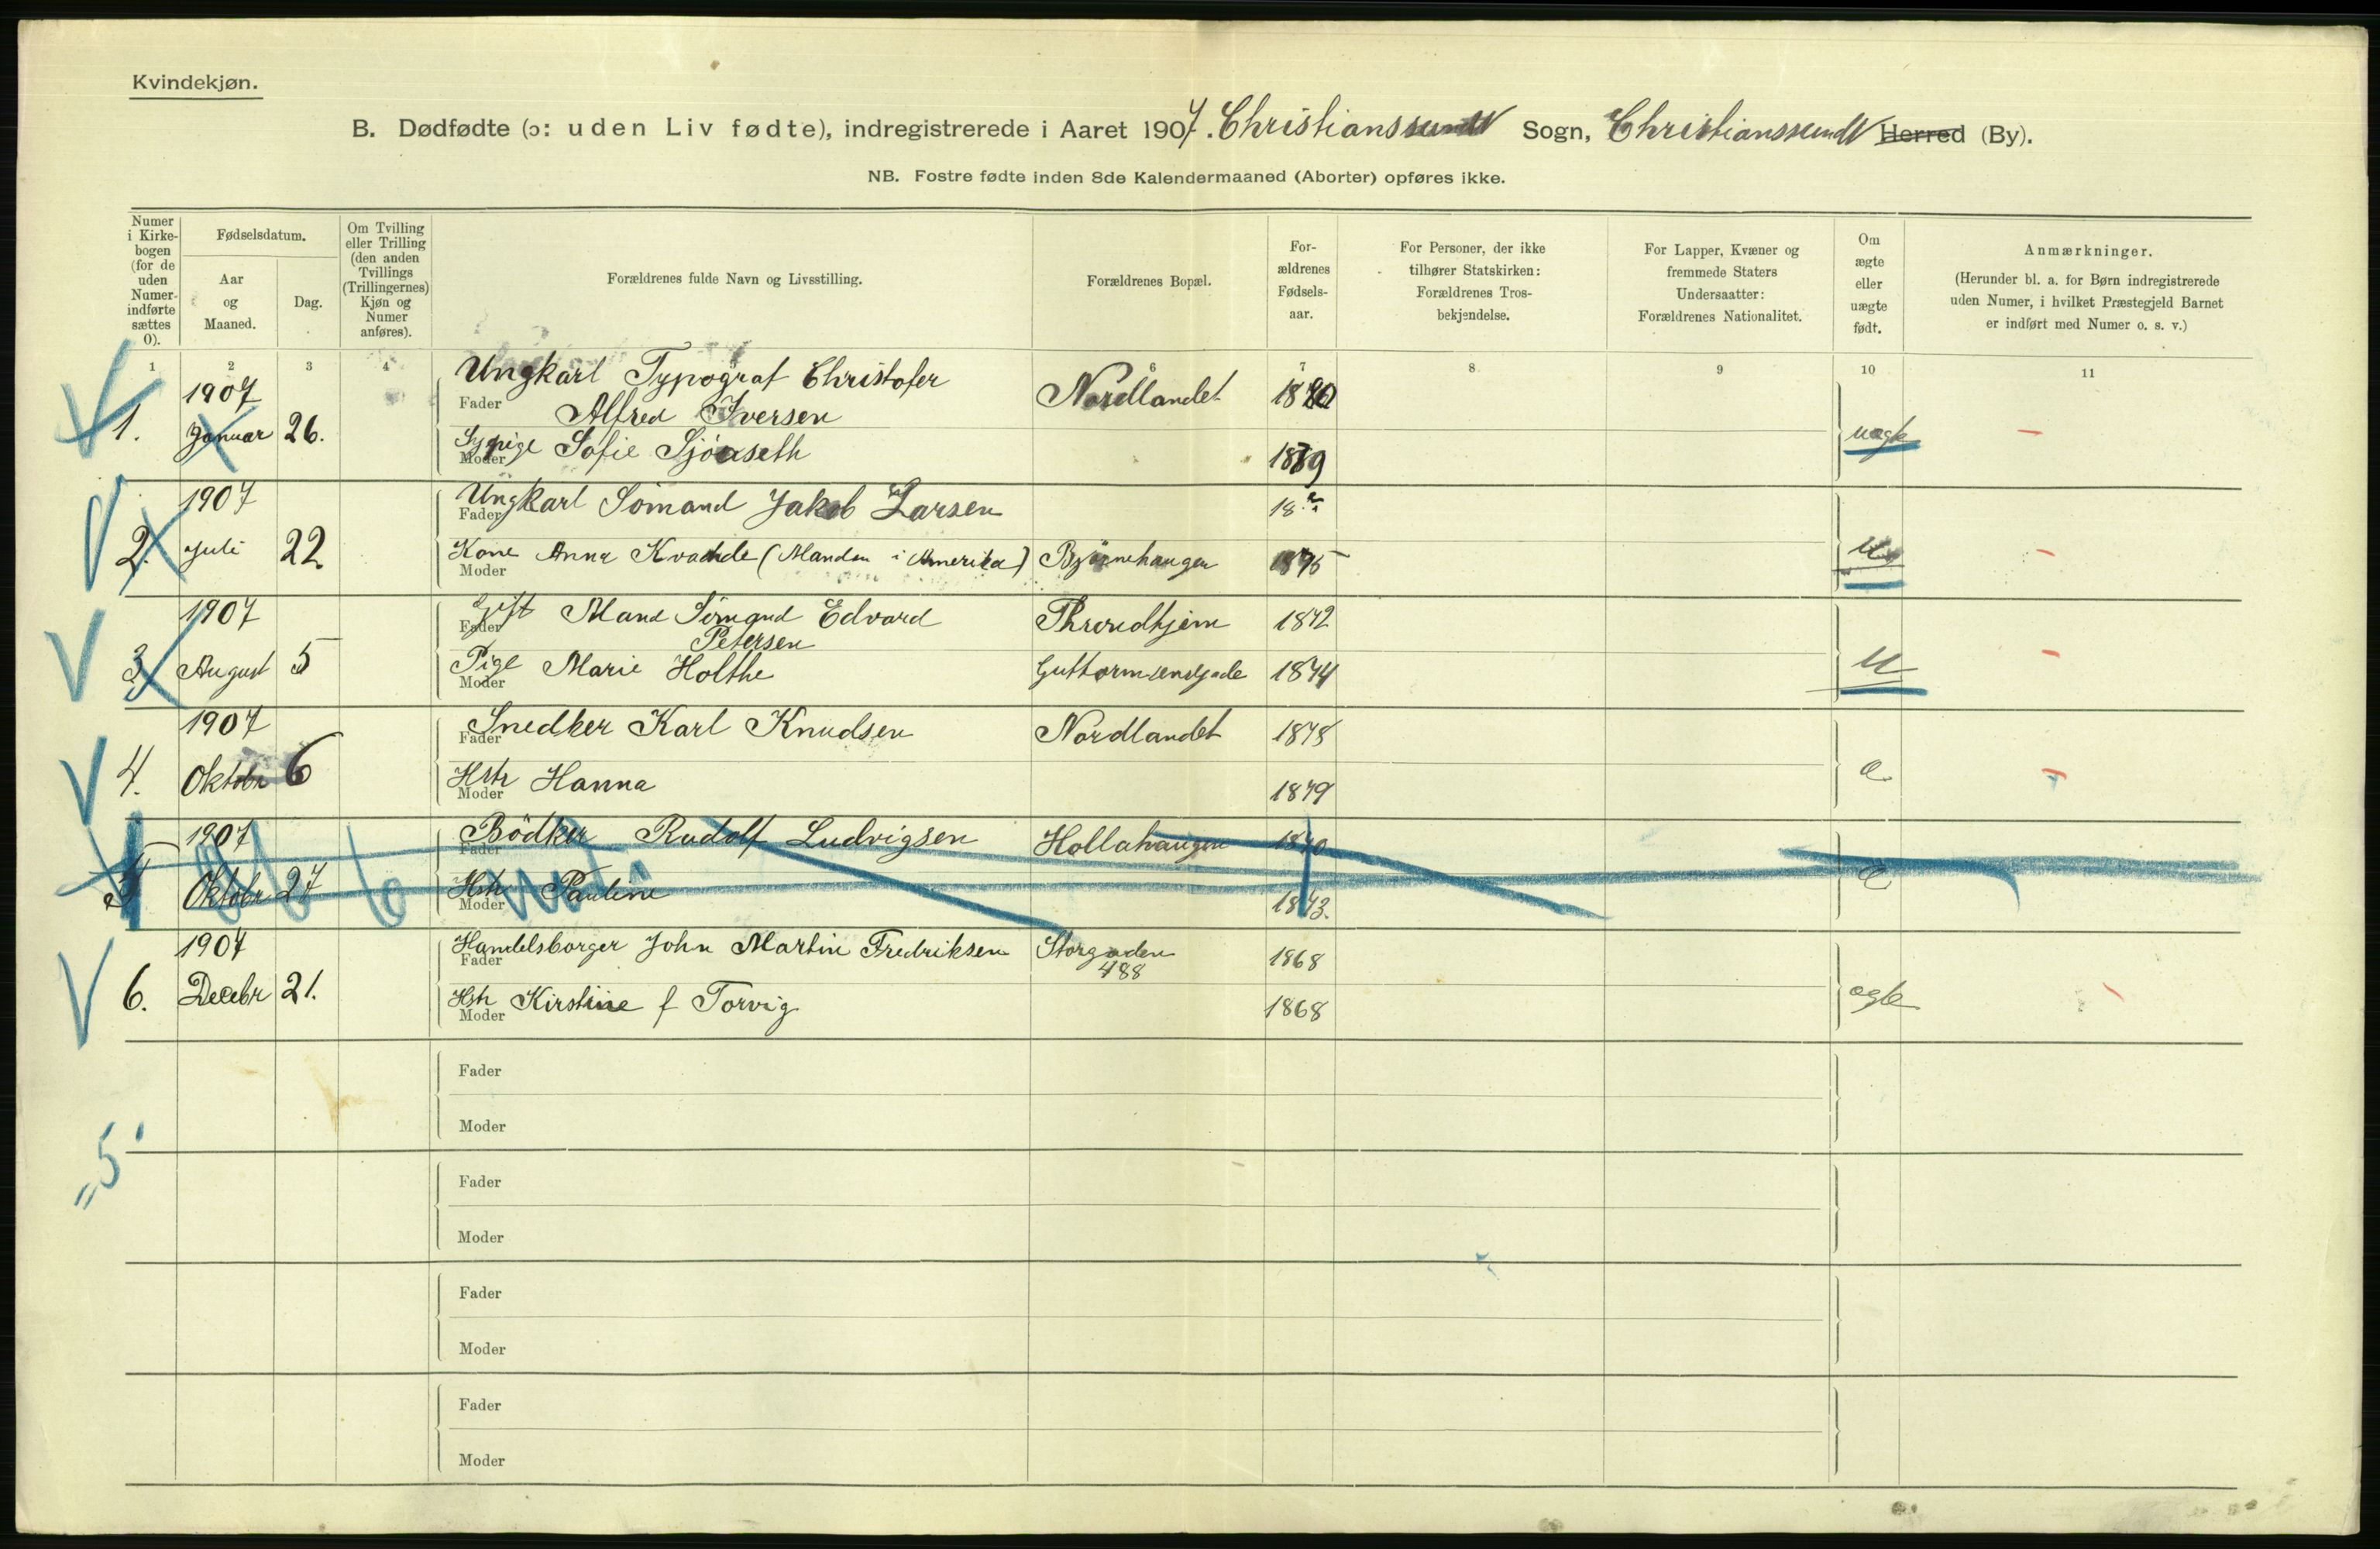 Kvindekjøn.
B. Dødfødte (ɔ: uden Liv fødte), indregistrerede i Aaret 1907. Christianssund Sogn, Christianssund Herred (By).
NB. Fostre fødte inden 8de Kalendermaaned (Aborter) opføres ikke.
Numer i Kirkebogen (for de uden Numer indførte sættes 0).
Fødselsdatum.
Aar og Maaned.
Dag.
Om Tvilling eller Trilling (den anden Tvillings (Trillingernes) Kjøn og Numer anføres).
Forældrenes fulde Navn og Livsstilling.
Forældrenes Bopæl.
Forældrenes Fødselsaar.
For Personer, der ikke tilhører Statskirken: Forældrenes Trosbekjendelse.
For Lapper, Kvæner og fremmede Staters Undersaatter: Forældrenes Nationalitet.
Om ægte eller uægte født.
Anmærkninger.
(Herunder bl. a. for Børn indregistrerede uden Numer, i hvilket Præstegjeld Barnet er indført med Numer o. s. v.)
1 2 3 4 6 7 8 9 10 11
1907 Ungkarl Typograf Christofer Nordlandet 1880
Fader Alfred Iversen
1. Januar 26. Sypige Sofie uægte
Moder 1889
1907 Ungkarl Sömand Jakob Larsen 18
Fader
2. Juli 22. Kone Anna (Manden i Amerika) Bjørnehaugen 1875 U
Moder
1907 Gift Mand Sömand Edvard Throndhjem 1872
Fader Petersen
3 August 5 Pige Marie Holthe Guttormsensgade 1874 U
Moder
1907 Snedker Karl Knudsen Nordlandet 1878
Fader
4. Oktobr 6 Hstr Hanna 1879
Moder
1907 Bödker Rudolf Ludvigsen Hollahaugen 1870
Fader
5 Oktobr 27 Hstr Pauline 1873.
Moder
1907 Handelsborger John Martin Fredriksen Storgaden 488 1868
Fader
6. Decebr 21. Hstr Kirstine f Torvig 1868 ægte
Moder
Fader
Moder
5
Fader
Moder
Fader
Moder
Fader
Moder